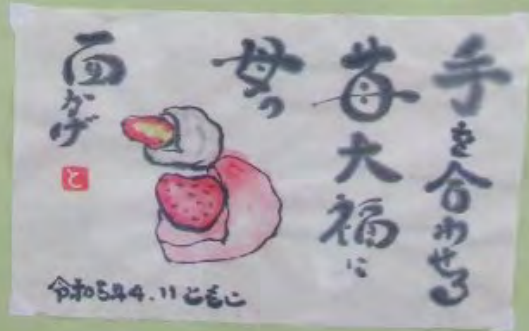 手を合わせる
苺大福に
母の
面かげ
と
令和5年4.11ともこ